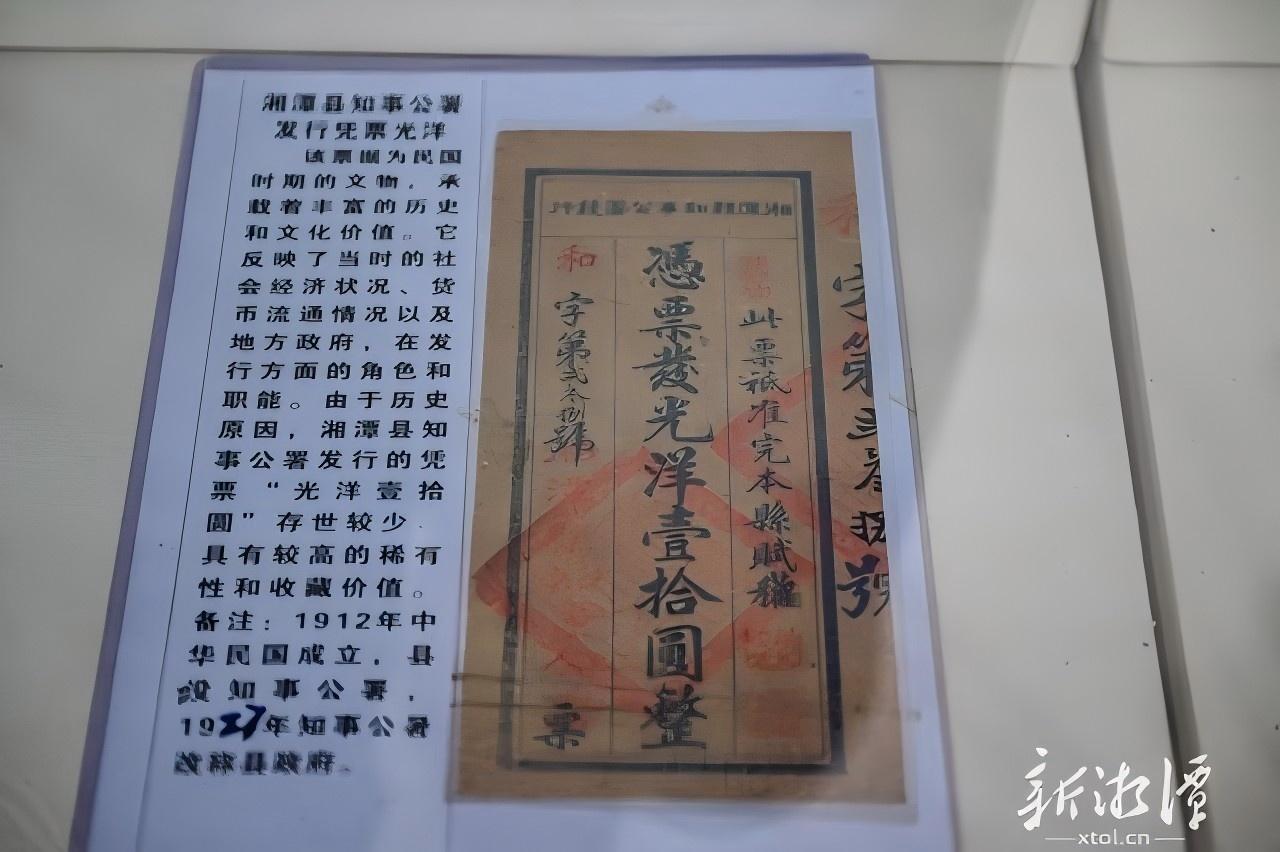 湘潭县知事公署
发行凭票光洋
该票据为民国
时期的文物，承
载着丰富的历史
和文化价值。它
反映了当时的社
会经济状况、货
币流通情况以及
地方政府，在发
行方面的角色和
职能。由于历史
原因，湘潭县知
事公署发行的凭
票“光洋壹拾
圓”存世较少、
具有较高的稀有
性和收藏价值。
备注：1912年中
华民国成立，县
设知事公署，
1927年知事公署
改称县政府、
此票祇准完本縣賦
憑票發光洋壹拾圓整
和字第弍叁捌號
票
字第
號
新湘潭
xtol.cn